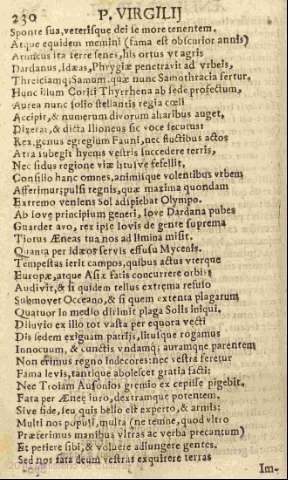 230 P. VIRGILIJ
Sponte sua, veterisque dei se more tenentem.
Atque equidem memini (fama est obscurior annis)
Aruncus ita ferre senes, his ortus vt agris
Dardanus, Idæas, Phrygiæ penetravit ad vrbeis,
Threiciamq; Samum. quæ nunc Samothracia fertur.
Hunc illum Coriti Thyrrhena ab sede profectum,
Aurea nunc solio stellantis regia cœli
Accipit, & numerum divorum altaribus auget.
Dixerat, & dicta Ilioneus sic voce secutus:
Rex, genus egregium Fauni, nec fluctibus actos
Atra subegit hyems vestris succedere terris,
Nec sidus regione viæ lituive fefellit.
Consilio hanc omnes, animisque volentibus vrbem
Afferimur; pulsi regnis, quæ maxima quondam
Extremo veniens Sol adspiebat Olympo.
Ab Iove principium generi, Iove Dardana pubes
Guardet avo, rex ipse Iovis de gente suprema
Troius Æneas tua nos ad limina misit.
Quanta per Idæos servis effusu Mycenis.
Tempestas ierit campos, quibus actus vterque
Europæ, atque Asiæ fatis concurrere orbis:
Audivit, & si quidem tellus extrema refuso
Submovet Occeano, & si quem extenta plagarum
Quatuor in medio dirimit plaga Solis iniqui.
Diluvio ex illo tot vasta per equora vecti
Dis sedem exiguam patrijs, litusque rogamus
Innocuum, & cunctis vndamq; auramque parentem
Non erimus regno indecores: nec vestra feretur
Fama levis, tantique abolescet gratia facti:
Nec Troiam Ausonios gremio ex cepisse pigebit.
Fata per Æneę iuro, dextramque potentem.
Sive fide, seu quis bello est experto, & armis:
Multi nos populi, multa (ne temne, quod vltro
Præferimus manibus vittas ac verba precantum)
Et petiere sibi, & voluere adiungere gentes.
Sed nos fata deum vestras exquirere terras
Im-